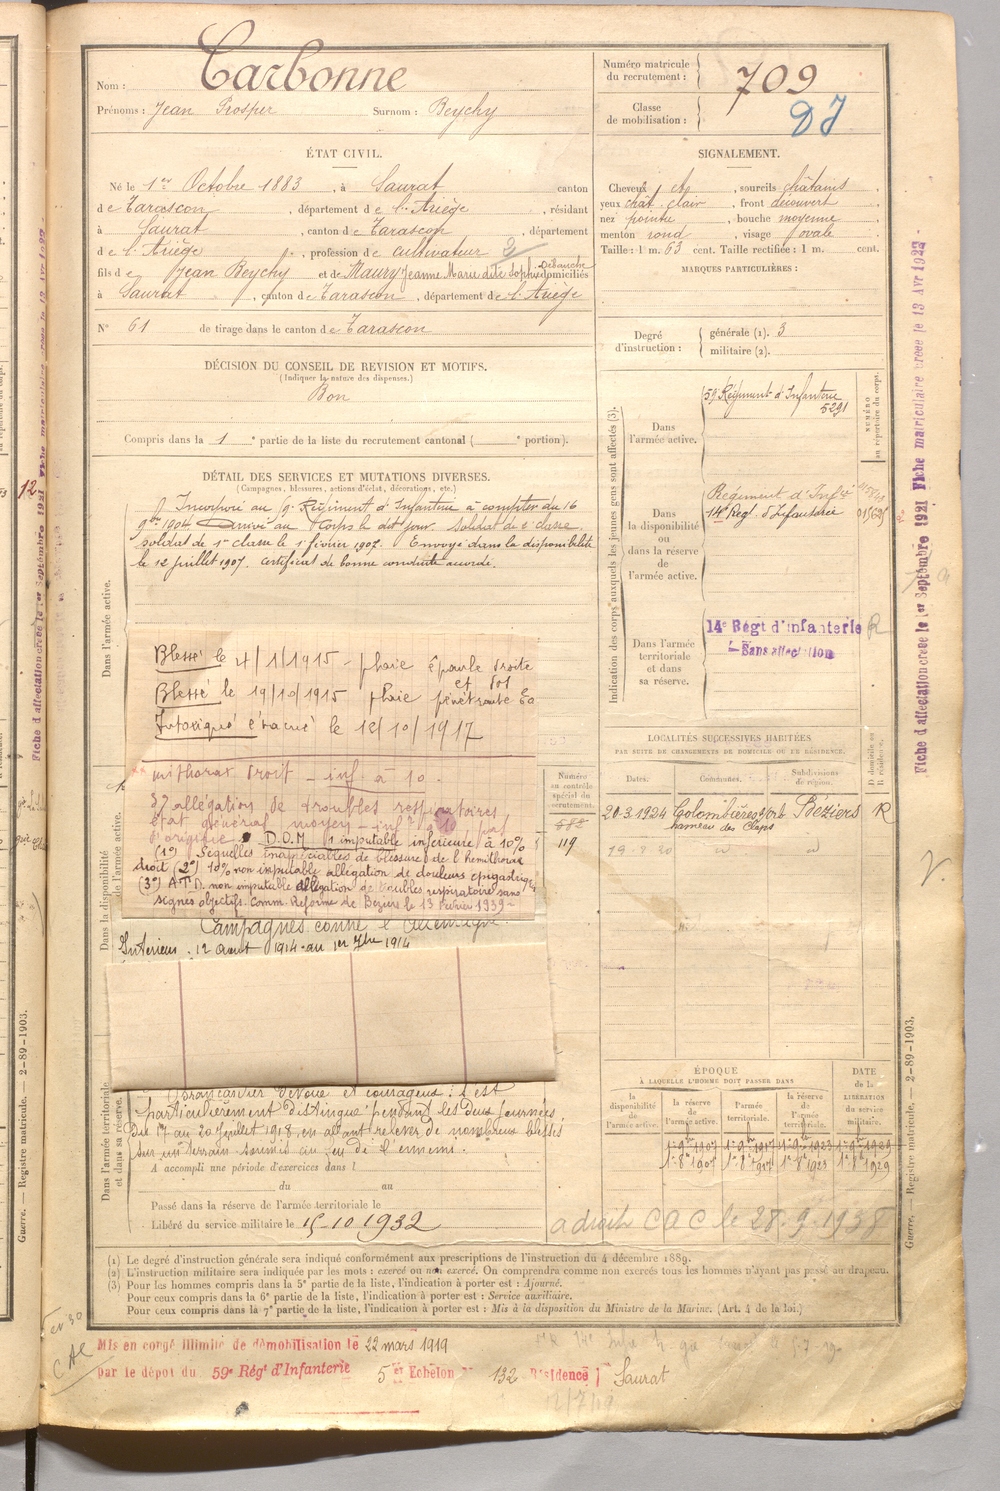 Nom : Carbonne
Prénoms : Jean Prosper Surnom : Beychy
Numéro matricule du recrutement : 709
Classe de mobilisation :
ÉTAT CIVIL.
Né le 1er Octobre 1883, à Saurat canton
de Tarascon, département de l'Ariège, résidant
à Saurat, canton de Tarascon, département
de l'Ariège, profession de cultivateur
fils de Jean Beychy et de Maury Jeanne Marie dite Sophie Debauche domiciliés
à Saurat, canton de Tarascon, département de l'Ariège
N° 61 de tirage dans le canton de Tarascon
SIGNALEMENT.
Cheveux et, sourcils châtains,
yeux chât. clair, front découvert
nez pointu, bouche moyenne
menton rond, visage ovale
Taille : 1 m. 63 cent. Taille rectifiée : 1 m. cent.
MARQUES PARTICULIÈRES :
Degré d'instruction : générale (1). 3
militaire (2).
DÉCISION DU CONSEIL DE REVISION ET MOTIFS.
(Indiquer la nature des dispenses.)
Bon
Compris dans la 1e partie de la liste du recrutement cantonal ( e portion).
DÉTAIL DES SERVICES ET MUTATIONS DIVERSES.
(Campagnes, blessures, actions d'éclat, décorations, etc.)
Dans l'armée active.
Incorporé au 59e Régiment d'Infanterie à compter du 16
9bre 1904 Arrivé au Corps le dit jour. Soldat de 2e classe.
soldat de 1re classe le 1er février 1907. Envoyé dans la disponibilité
le 12 juillet 1907. Certificat de bonne conduite accordé.
Blessé le 4/1/1915 - plaie épaule droite
et dos
Blessé le 19/10/1915 plaie pénétrante
Intoxiqué évacué le 18/10/1917
mithorax droit - inf à 10.
3°) allégation de troubles respiratoires
État général moyen - inf à 10 pas
d'origine. D.O.M. (1 imputable inférieure à 10%
(1°) Sequelles inappréciables de blessure de l'hemithorax
droit (2°) 10% non imputable allégation de douleurs épigastriques
(3°) A.T.D. non imputable allégation de troubles respiratoires sans
signes objectifs. Comm. Réforme de Béziers le 13 Février 1939 -
Campagnes contre l'Allemagne
Intérieur. 12 Août 1914 au 1er 7bre 1914
Brancardier dévoué et courageux : s'est
particulièrement distingué pendant les deux journées
du 17 au 20 Juillet 1918, en allant relever de nombreux blessés
sur un terrain soumis au feu de l'ennemi.
Dans la disponibilité
de l'armée active.
Dans l'armée territoriale
et dans sa réserve.
A accompli une période d'exercices dans l
du au
Passé dans la réserve de l'armée territoriale le
Libéré du service militaire le 15-10 1932
Indication des corps auxquels les jeunes gens sont affectés (3).
NUMÉRO
au répertoire du corps.
Dans l'armée active.
59e Régiment d'Infanterie
5291
Dans la disponibilité ou dans la réserve de l'armée active.
Régiment d'Infie
14e Régt. d'Infanterie
Dans l'armée territoriale et dans sa réserve.
14e Régt d'infanterie R
Sans affectation
LOCALITÉS SUCCESSIVES HABITÉES
PAR SUITE DE CHANGEMENTS DE DOMICILE OU DE RÉSIDENCE.
Numéro au contrôle spécial du recrutement.
Dates. Communes. Subdivisions de région. D domicile ou R résidence.
582
119
20-3.1924 Colombières s/orb Béziers R
hameau des Claps
ÉPOQUE
À LAQUELLE L'HOMME DOIT PASSER DANS
DATE de la LIBÉRATION du service militaire.
la disponibilité de l'armée active.
la réserve de l'armée active.
l'armée territoriale.
la réserve de l'armée territoriale.
1er 8bre 1907
1er 8bre 1917
1er 8bre 1923
1er 8bre 1929
a droit C A C le 28.9.1938
(1) Le degré d'instruction générale sera indiqué conformément aux prescriptions de l'instruction du 4 décembre 1889.
(2) L'instruction militaire sera indiquée par les mots : exercé ou non exercé. On comprendra comme non exercés tous les hommes n'ayant pas passé au drapeau.
(3) Pour les hommes compris dans la 5e partie de la liste, l'indication à porter est : Ajourné.
Pour ceux compris dans la 6e partie de la liste, l'indication à porter est : Service auxiliaire.
Pour ceux compris dans la 7e partie de la liste, l'indication à porter est : Mis à la disposition du Ministre de la Marine. (Art. 4 de la loi.)
Mis en congé illimité de démobilisation le 22 mars 1919
par le dépôt du 59e Régt d'Infanterie 5e Echelon N° 132 Résidence Saurat
C A C
12/7/19
Guerre. — Registre matricule. — 2-89-1903.
Fiche d'affectation créée le 1er Septembre 1921 Fiche matriculaire créée le 13 Avr 1923
Guerre. — Registre matricule. — 2-89-1903.